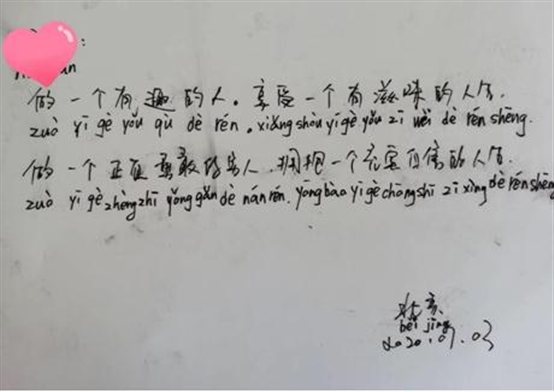 做一个有趣的人。享受一个有滋味的人生.
zuò yī gè yǒu qù dè rén. xiǎng shòu yī gè yǒu zī wèi dè rén shēng.
做一个正直勇敢的男人.拥抱一个充实自信的人生.
zuò yī gè zhèng zhí yǒng gǎn dè nán rén. yōng bào yī gè chōng shí zì xìng dè rén shēng
北京
běi jīng
2020.07.03